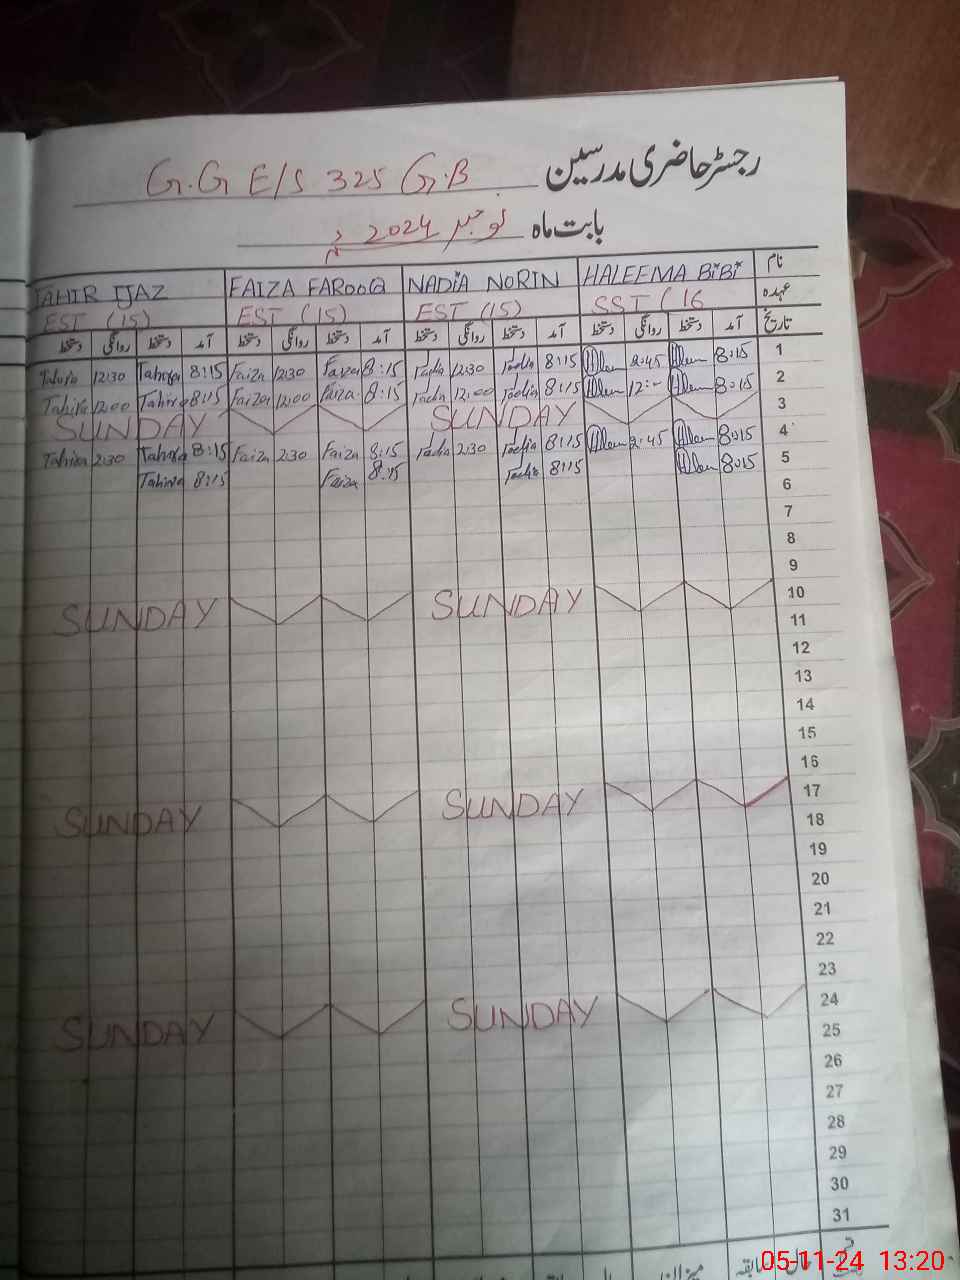 رجسٹر حاضری مدرسین G.G E/S 325 G.B
بابت ماہ نومبر 2024
نام HALEEMA BiBi NADiA NORIN FAIZA FAROOQ TAHIR IJAZ
عہدہ SST (16 EST (15) EST (15) EST (15)
تاریخ آمد دستخط روانگی دستخط آمد دستخط روانگی دستخط آمد دستخط روانگی دستخط آمد دستخط روانگی دستخط
1 8:15 2:45 8:15 Nadia 12:30 Nadia 8:15 Faiza 12:30 Faiza 8:15 Tahira 12:30 Tahira
2 8:15 12:- 8:15 Nadia 12:00 Nadia 8:15 Faiza 12:00 Faiza 8:15 Tahira 12:00 Tahira
3 SUNDAY SUNDAY
4 8:15 2:45 8:15 Nadia 2:30 Nadia 8:15 Faiza 2:30 Faiza 8:15 Tahira 2:30 Tahira
5 8:15 8:15 Nadia 8:15 Faiza 8:15 Tahira
6
7
8
9
10 SUNDAY SUNDAY
11
12
13
14
15
16
17 SUNDAY SUNDAY
18
19
20
21
22
23
24 SUNDAY SUNDAY
25
26
27
28
29
30
31
حال سابقہ میزان
05-11-24 13:20